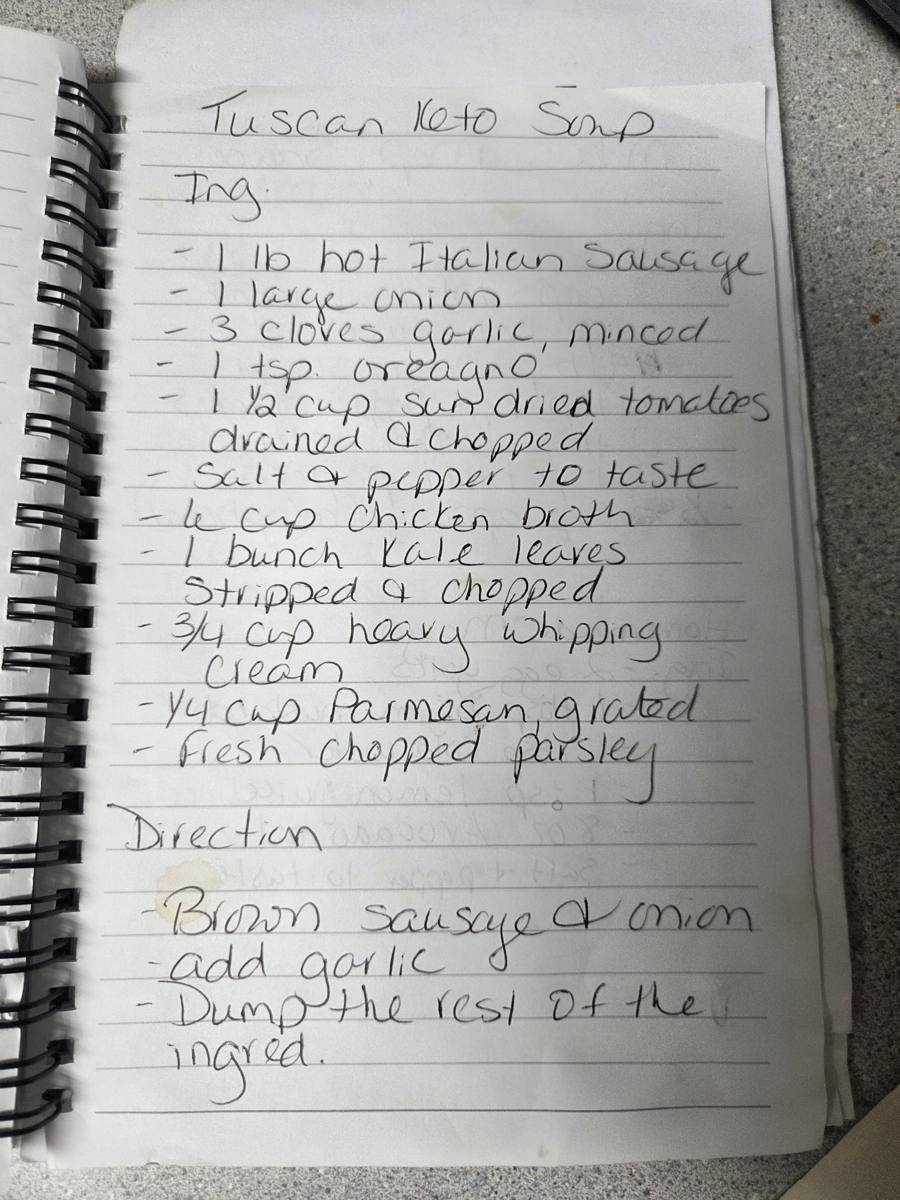 Tuscan Keto Soup
Ing.
- 1 lb hot Italian Sausage
- 1 large onion
- 3 cloves garlic, minced
- 1 tsp. oreagno
- 1 1/2 cup sun dried tomatoes
drained & chopped
- Salt & pepper to taste
- cup chicken broth
- 1 bunch kale leaves
Stripped & chopped
- 3/4 cup heavy whipping
cream
- 1/4 cup Parmesan, grated
- Fresh chopped parsley
Direction
- Brown sausage & onion
- add garlic
- Dump the rest of the
ingred.